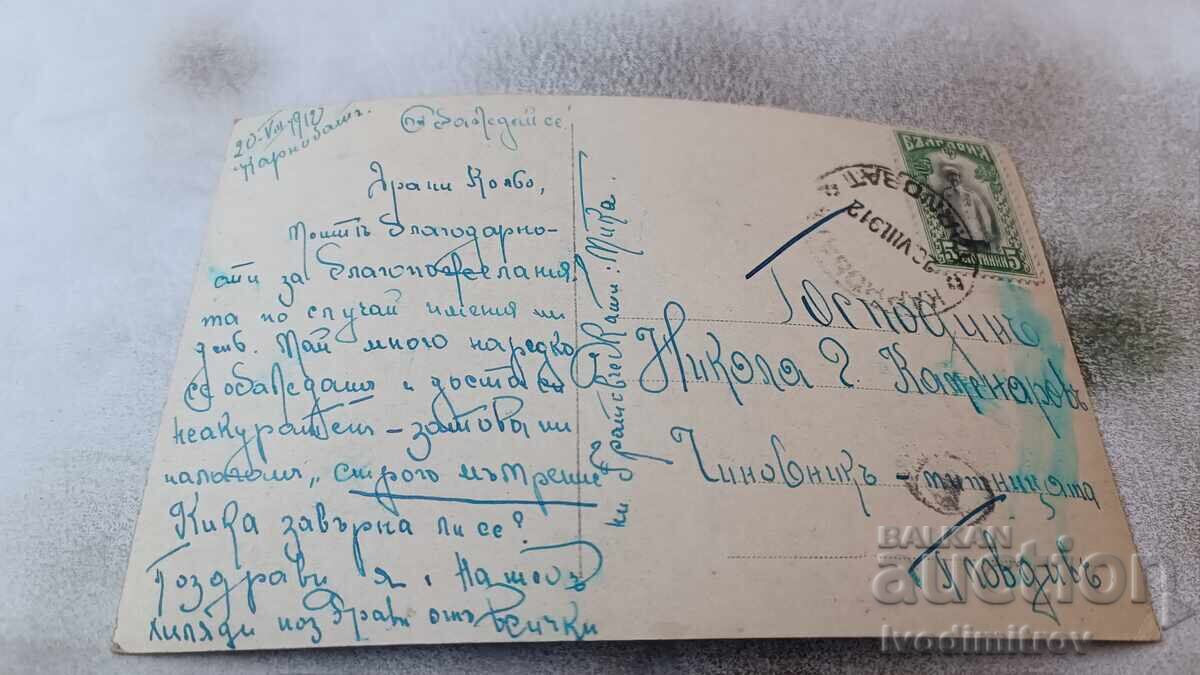 20-VIII-1912
Карнобатъ.
Обаждай се
Драги Кольо,
Моитѣ благодарно-
сти за благопожелания
та по случай имения ми
день. Май много нарѣдко
се обаждашъ и доста си
неакуратенъ - затова ти
налагамъ „строго мъмрение“
Кица завърна ли се?
Поздрави я, Начовъ
хиляди поздрави отъ всички
ни. Братовчедка ти: Мица.
БЪЛГАРИЯ
5 СТОТИНКИ 5
VIII.912
Господинъ
Никола Г. Каменаровъ
Чиновникъ -
Пловдивъ
BALKAN
auction
Ivodimitrov